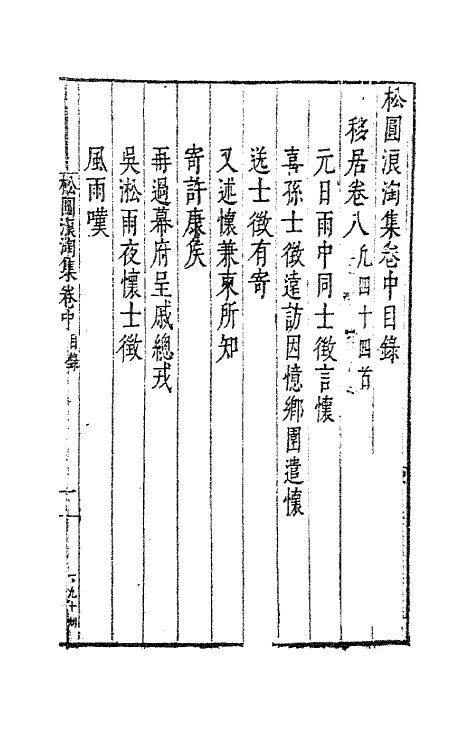 松圓浪淘集卷中目錄
移居卷八凡四十四首
元日雨中同士徵言懷
喜孫士徵遠訪因憶鄉園遣懷
送士徵有寄
又述懷兼柬所知
寄許康侯
再過幕府呈戚總戎
吳淞雨夜懷士徵
風雨嘆
松圓浪淘集卷中 目錄
一